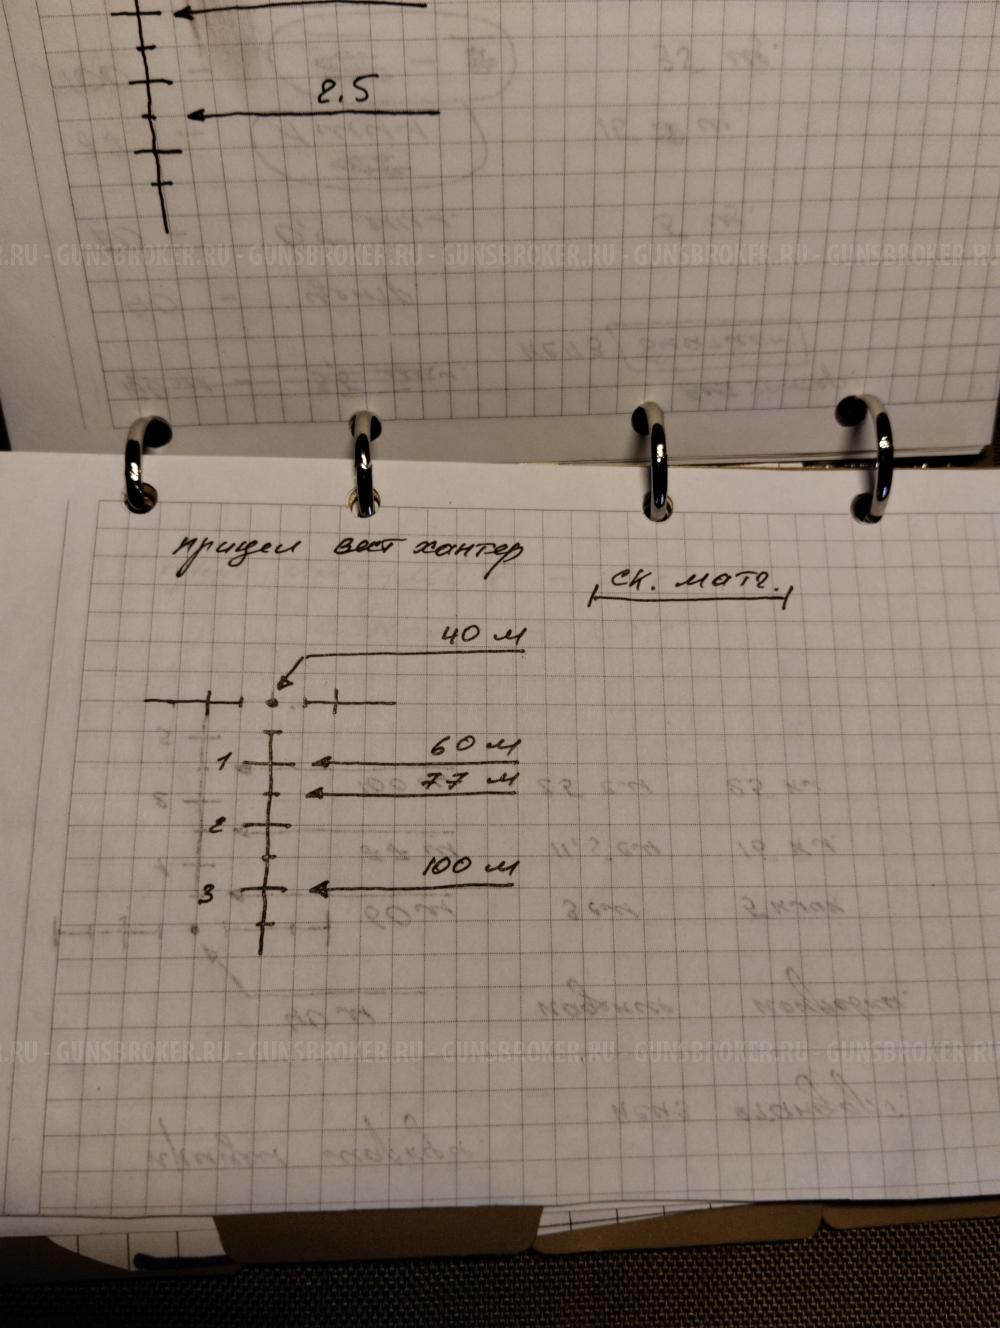 2.5
R.RU - GUNSBROKER.RU - GUNSBROKER.RU - GUNSBROKER.RU - GUNSBROKER.RU - GUNSBROKER.RU
прицел вест хантер
ск. матч.
40 м
1 60 м
77 м
2
3 100 м
R.RU - GUNSBROKER.RU - GUNSBROKER.RU - GUNSBROKER.RU - GUNSBROKER.RU - GUNSBROKER.RU